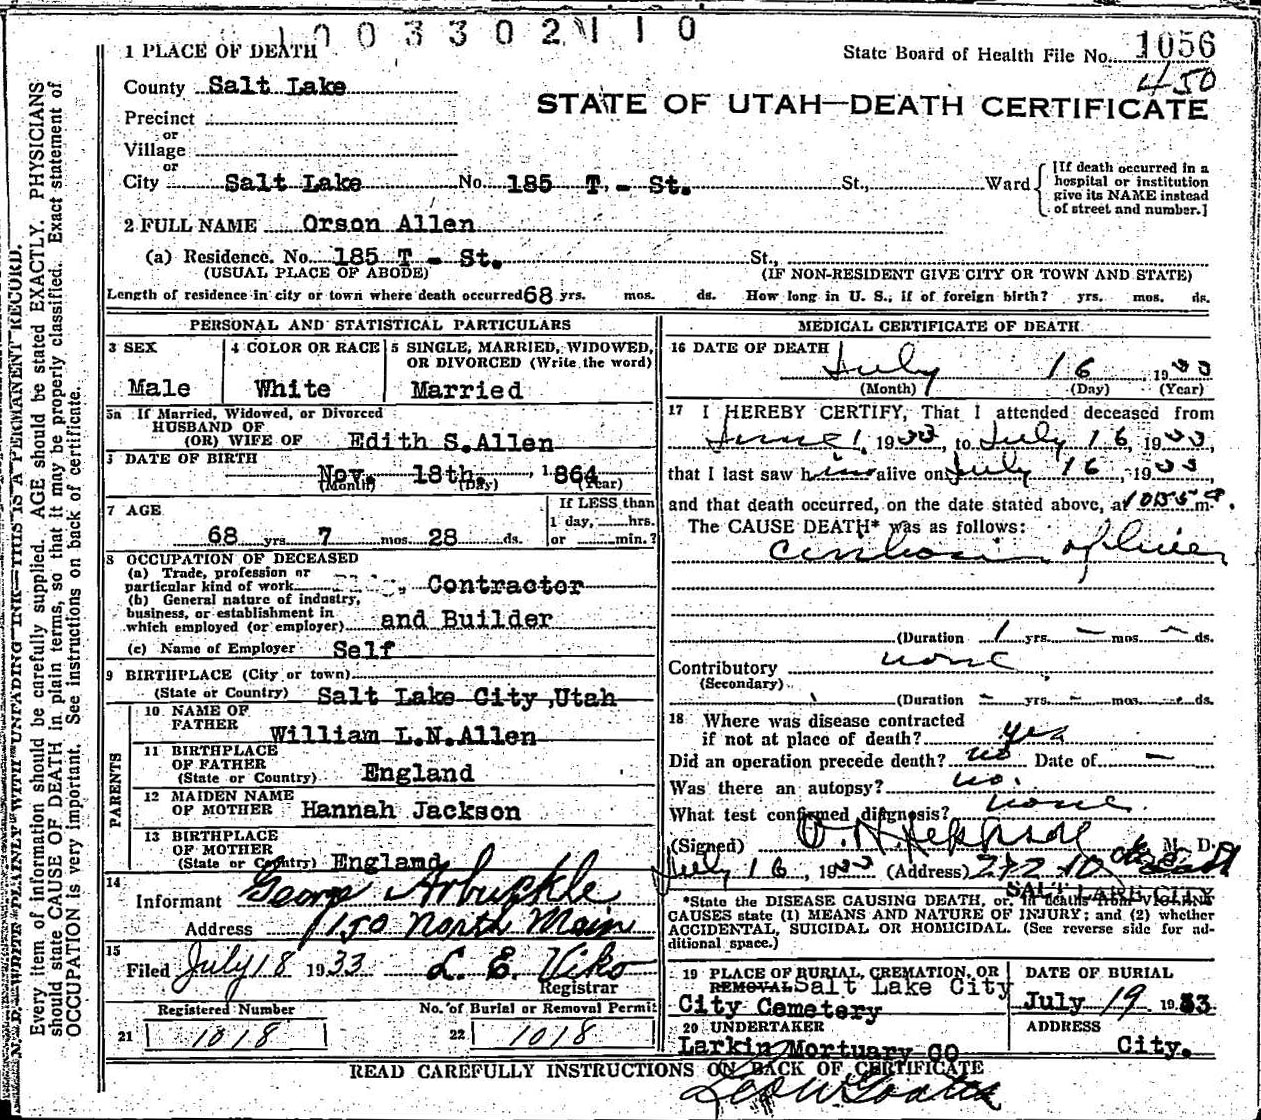 1003302110
1 PLACE OF DEATH
State Board of Health File No. 1056
450
County Salt Lake
STATE OF UTAH—DEATH CERTIFICATE
Precinct
or
Village
or
City Salt Lake No. 185 T - St. St., Ward
[If death occurred in a hospital or institution give its NAME instead of street and number.]
2 FULL NAME Orson Allen
(a) Residence. No. 185 T - St. St.,
(USUAL PLACE OF ABODE) (IF NON-RESIDENT GIVE CITY OR TOWN AND STATE)
Length of residence in city or town where death occurred 68 yrs. mos. ds. How long in U. S., if of foreign birth? yrs. mos. ds.
PERSONAL AND STATISTICAL PARTICULARS
3 SEX
Male
4 COLOR OR RACE
White
5 SINGLE, MARRIED, WIDOWED,
OR DIVORCED (Write the word)
Married
5a If Married, Widowed, or Divorced
HUSBAND OF
(OR) WIFE OF Edith S.Allen
DATE OF BIRTH
Nov. 18th. 1864
(Month) (Day) (Year)
7 AGE
68 yrs. 7 mos. 28 ds.
If LESS than
1 day, hrs.
or min.?
8 OCCUPATION OF DECEASED
(a) Trade, profession or
particular kind of work Contractor
(b) General nature of industry,
business, or establishment in
which employed (or employer) and Builder
(c) Name of Employer Self
9 BIRTHPLACE (City or town)
(State or Country) Salt Lake City ,Utah
PARENTS
10 NAME OF
FATHER William L.N.Allen
11 BIRTHPLACE
OF FATHER
(State or Country) England
12 MAIDEN NAME
OF MOTHER Hannah Jackson
13 BIRTHPLACE
OF MOTHER
(State or Country) England
14
Informant George Arbuckle
Address 1150 North Main
15
Filed July 18 1933 L. E. Viko
Registrar
Registered Number
21 1018
No. of Burial or Removal Permit
22 1018
MEDICAL CERTIFICATE OF DEATH
16 DATE OF DEATH
July 16, 1933
(Month) (Day) (Year)
17 I HEREBY CERTIFY, That I attended deceased from
June 1, 1933, to July 16, 1933,
that I last saw him alive on July 16, 1933
and that death occurred, on the date stated above, at m.
The CAUSE DEATH* was as follows:
cirrhosis of liver
(Duration 1 yrs. - mos. - ds.
Contributory none
(Secondary)
(Duration - yrs. - mos. - ds.
18 Where was disease contracted
if not at place of death? yes
Did an operation precede death? no Date of -
Was there an autopsy? no.
What test confirmed diagnosis? none.
(Signed) M. D.
July 16, 1933 (Address)
SALT LAKE CITY
*State the DISEASE CAUSING DEATH, or, in deaths from VIOLENT
CAUSES state (1) MEANS AND NATURE OF INJURY; and (2) whether
ACCIDENTAL, SUICIDAL OR HOMICIDAL. (See reverse side for ad-
ditional space.)
19 PLACE OF BURIAL, CREMATION, OR
REMOVAL Salt Lake City
City Cemetery
DATE OF BURIAL
July 19 1933
20 UNDERTAKER
Larkin Mortuary CO
ADDRESS
City.
READ CAREFULLY INSTRUCTIONS ON BACK OF CERTIFICATE
N. B.—WRITE PLAINLY WITH UNFADING INK—THIS IS A PERMANENT RECORD.
Every item of information should be carefully supplied. AGE should be stated EXACTLY. PHYSICIANS
should state CAUSE OF DEATH in plain terms, so that it may be properly classified. Exact statement of
OCCUPATION is very important. See instructions on back of certificate.